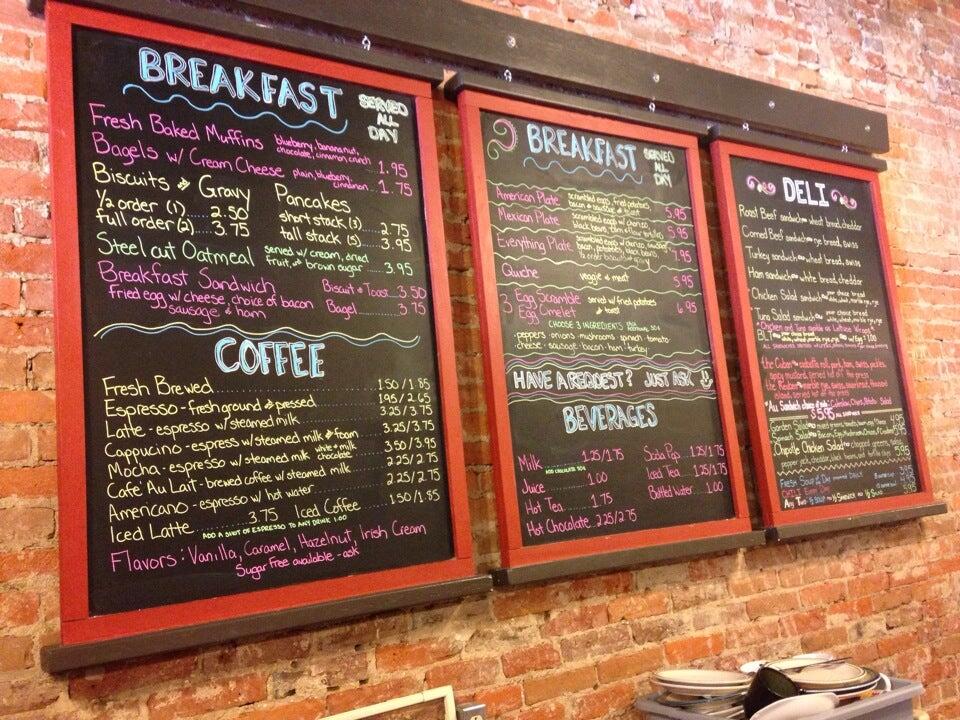 BREAKFAST
SERVED ALL DAY
Fresh Baked Muffins blueberry, banananut, chocolate, cinnamon crunch 1.95
Bagels w/ Cream Cheese plain, blueberry, cinnamon 1.75
Biscuits and Gravy
1/2 order (1) 2.50
full order (2) 3.75
Pancakes
short stack (3) 2.75
tall stack (5) 3.95
Steel cut Oatmeal served w/ cream, dried fruit, and brown sugar 3.95
Breakfast Sandwich Biscuit or Toast 3.50
Fried egg w/ cheese, choice of bacon Bagel 3.75
sausage or ham
COFFEE
Fresh Brewed 1.50/1.85
Espresso - fresh ground and pressed 1.95/2.65
Latte - espresso w/ steamed milk 3.25/3.75
Cappucino - espress w/ steamed milk and foam 3.25/3.75
Mocha - espresso w/ steamed milk white or milk chocolate 3.50/3.95
Café Au Lait - brewed coffee w/ steamed milk 2.25/2.75
Americano - espresso w/ hot water 2.25/2.75
Iced Latte 3.75 Iced Coffee 1.50/1.85
ADD A SHOT OF ESPRESSO TO ANY DRINK 1.00
Flavors: Vanilla, Caramel, Hazelnut, Irish Cream
Sugar Free available - ask
BREAKFAST
SERVED ALL DAY
American Plate scrambled eggs, fried potatoes
bacon or sausage toast 5.95
Mexican Plate scrambled eggs w/ chorizo
black beans 5.95
Everything Plate scrambled eggs w/ chorizo, sausage,
bacon, potatoes, black beans 7.95
1/2 order biscuits gravy
Quiche veggie or meat 5.95
3 Egg Scramble served w/ fried potatoes
3 Egg Omelet toast 6.95
CHOOSE 3 INGREDIENTS
peppers · onions · mushrooms · spinach · tomato
cheese · sausage · bacon · ham · turkey
HAVE A REQUEST? JUST ASK
BEVERAGES
Milk 1.25/1.75
ADD CHOCOLATE 50¢
Juice 1.00
Hot Tea 1.75
Hot Chocolate 2.25/2.75
Soda Pop 1.25/1.75
Iced Tea 1.25/1.75
Bottled Water 1.00
DELI
Roast Beef sandwich wheat bread, cheddar
Corned Beef sandwich rye bread, swiss
Turkey sandwich wheat bread, swiss
Ham sandwich white bread, cheddar
Chicken Salad sandwich your choice bread
Tuna Salad sandwich your choice bread
BLT
the Cuban
the Reuben
$5.95
Garden Salad
Spinach Salad
Chipotle Chicken Salad